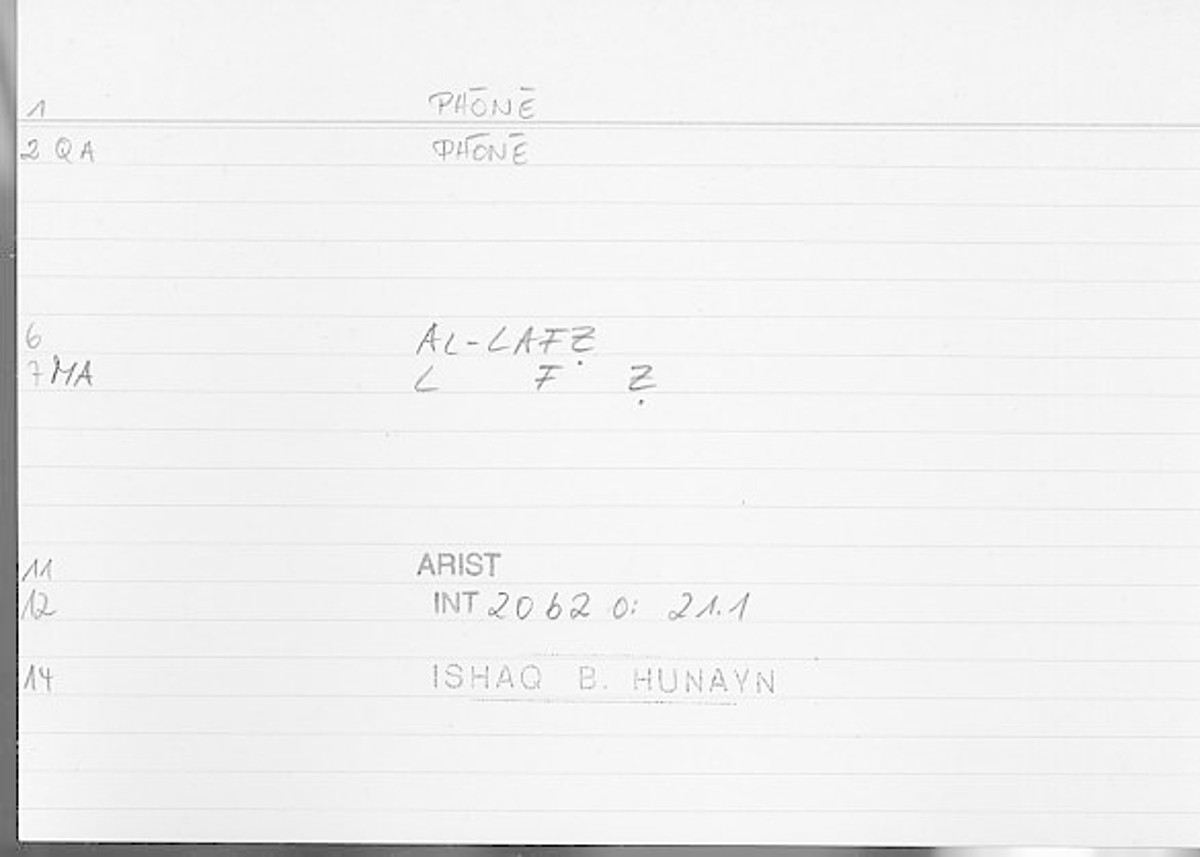 1 PHŌNĒ
2 QA PHŌNĒ
6 AL-LAFẒ
7 MA L F Ẓ
11 ARIST
12 INT 20 b 20: 21.1
14 ISHAQ B. HUNAYN